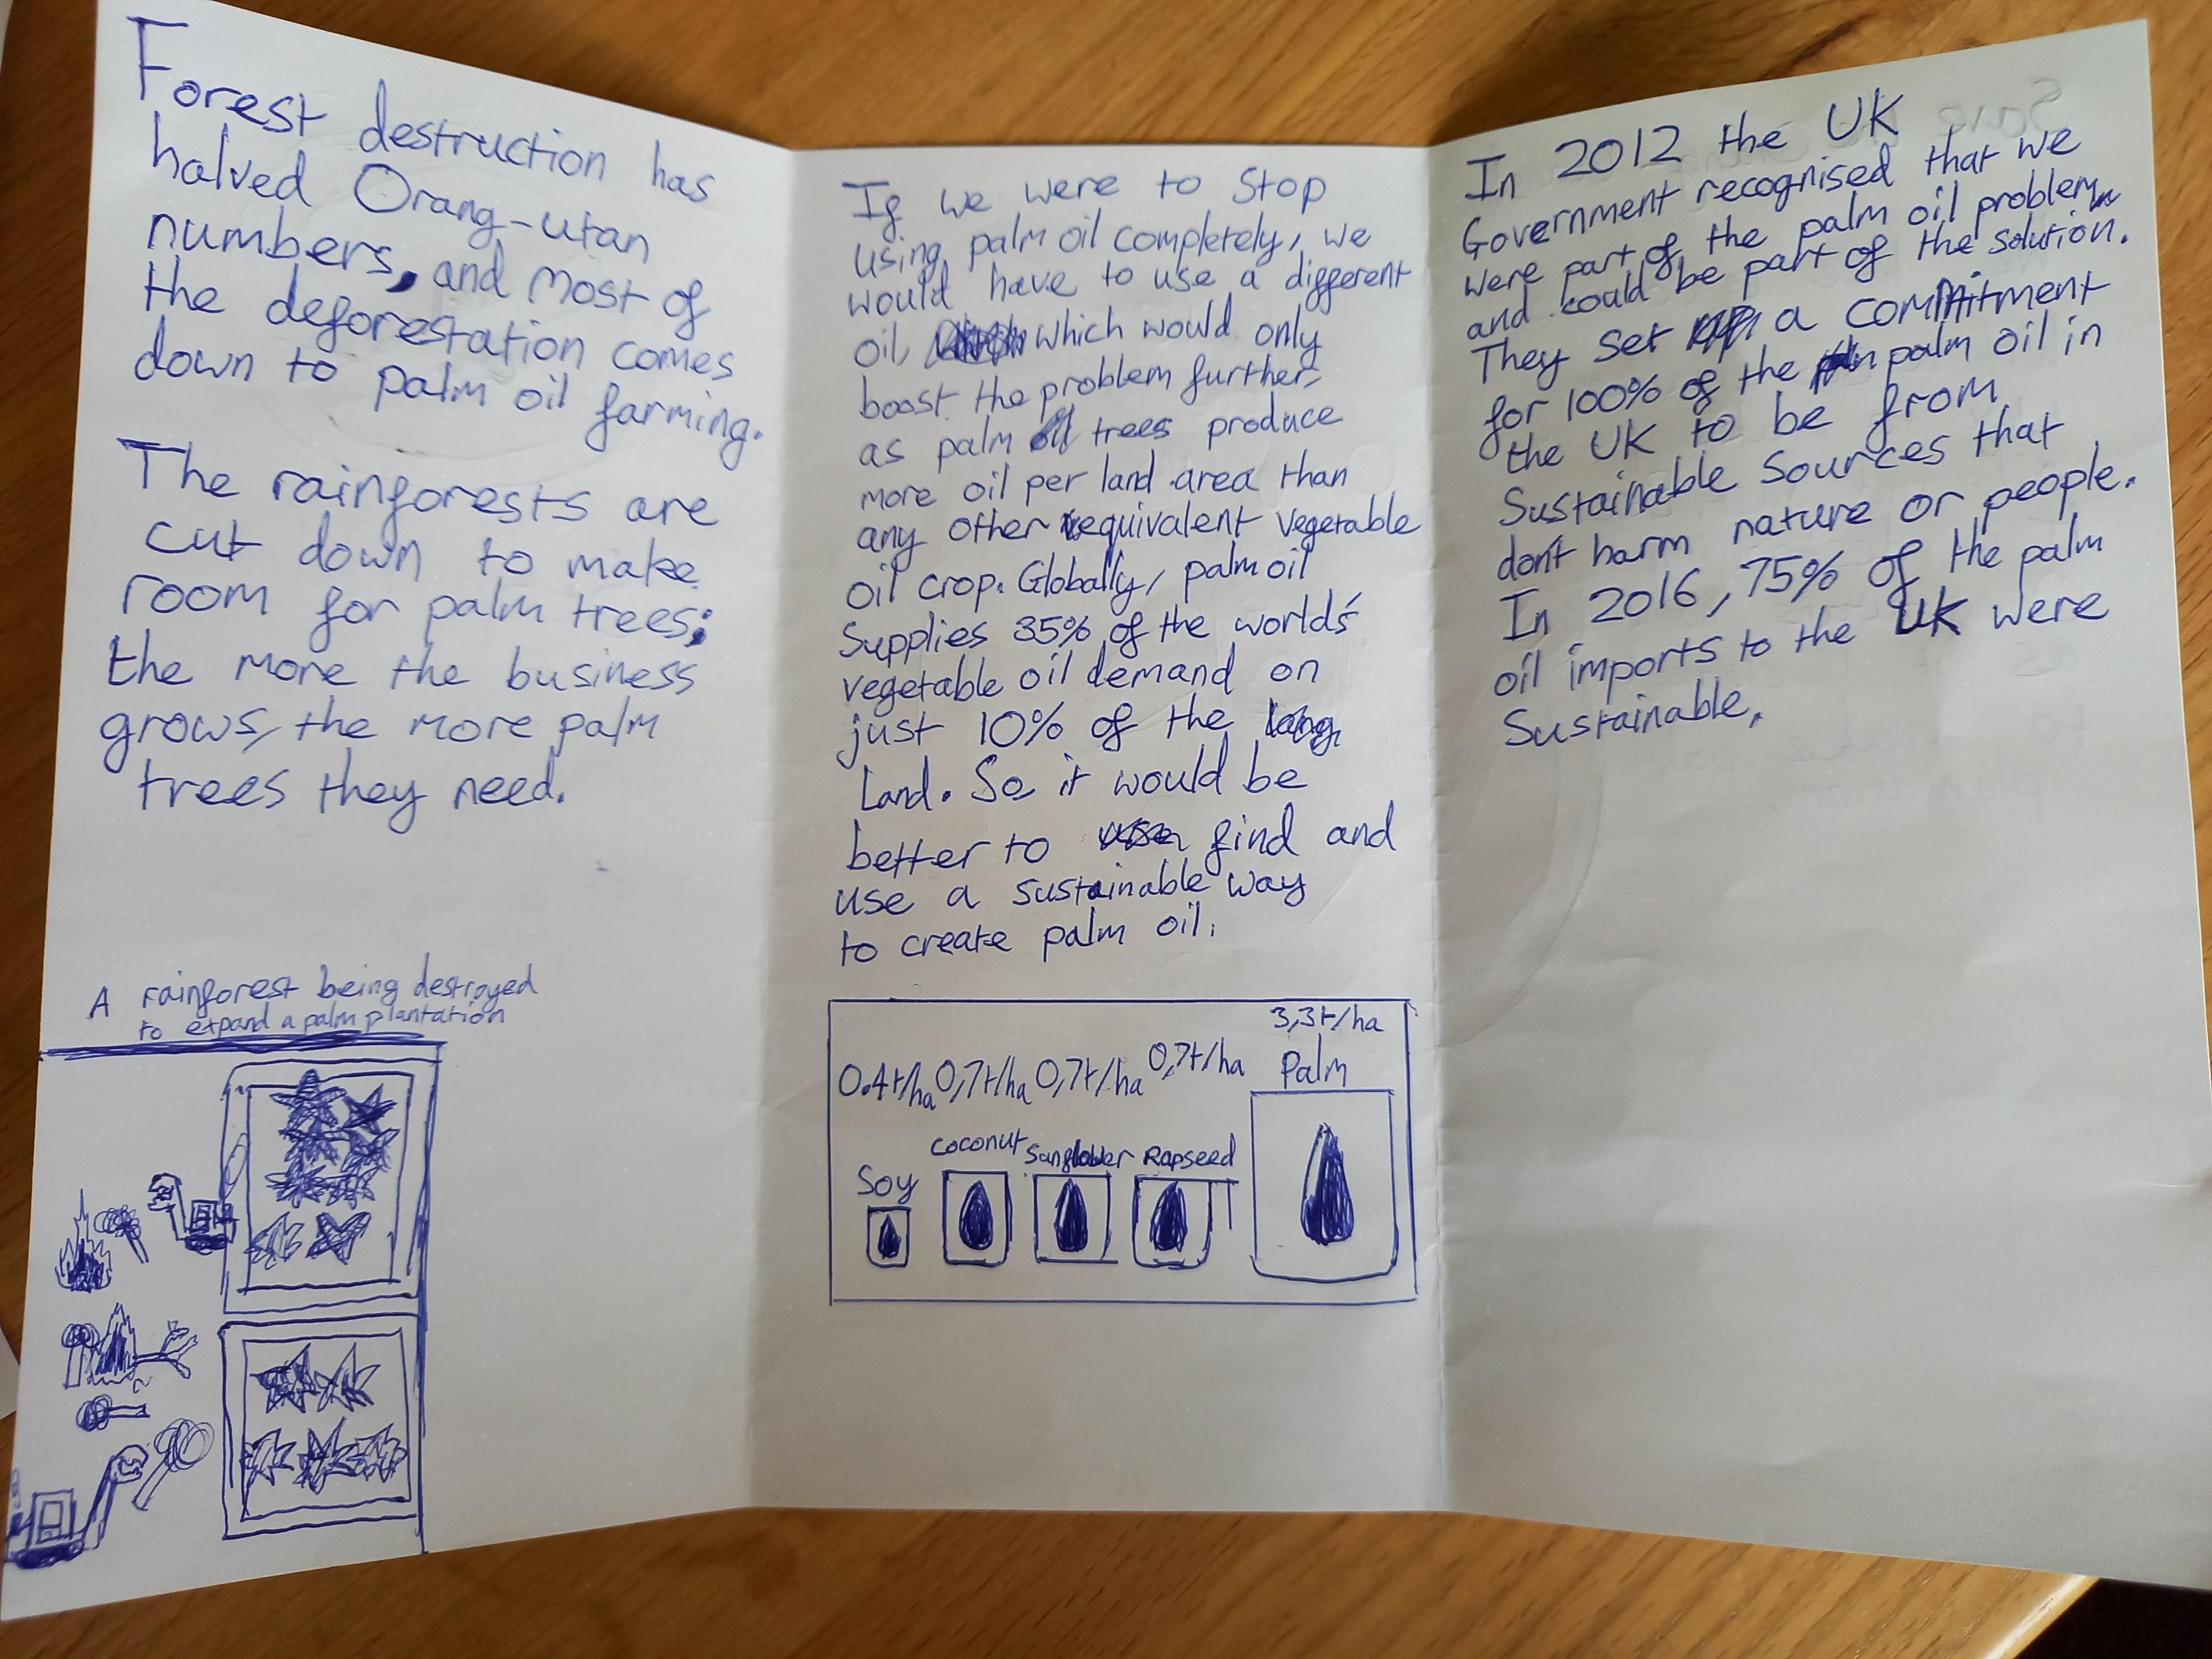 Forest destruction has
halved Orang-utan
numbers, and most of
the deforestation comes
down to palm oil farming.
The rainforests are
cut down to make
room for palm trees;
the more the business
grows, the more palm
trees they need.
A rainforest being destroyed
to expand a palm plantation
If we were to stop
using palm oil completely, we
would have to use a different
oil, which would only
boost the problem further,
as palm trees produce
more oil per land area than
any other equivalent vegetable
oil crop. Globally, palm oil
supplies 35% of the world's
vegetable oil demand on
just 10% of the
Land. So, it would be
better to find and
use a sustainable way
to create palm oil.
3,3t/ha
0.4t/ha 0,7t/ha 0,7t/ha 0,7t/ha Palm
Soy Coconut Sunflower Rapseed
In 2012 the UK
Government recognised that we
were part of the palm oil problem
and could be part of the solution.
They set a commitment
for 100% of the palm oil in
the UK to be from
Sustainable Sources that
don't harm nature or people.
In 2016, 75% of the palm
oil imports to the UK were
Sustainable.